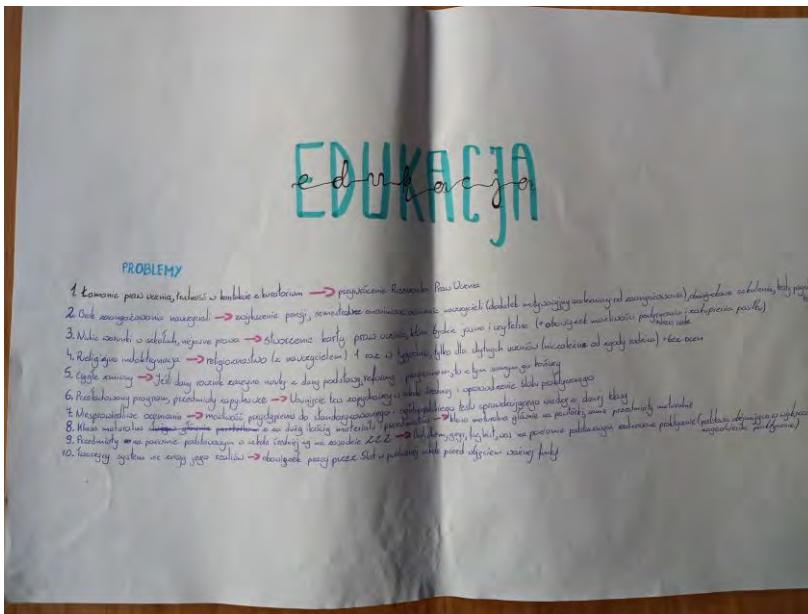 EDUKACJA
edukacja
PROBLEMY
1. Łamanie praw ucznia, trudność w kontakcie z kuratorium → przywrócenie Rzecznika Praw Ucznia
2. Brak zaangażowania nauczycieli → zwiększenie pensji, ocenianie nauczycieli (dodatek motywacyjny od zaangażowania), obowiązkowe szkolenia, testy
3. w szkołach, niejasne prawa → stworzenie karty praw ucznia, która będzie jasna i czytelna (+ obowiązek możliwości i zakupienia posiłku)
4. Religijna indoktrynacja → religioznawstwo (z nauczycielem) 1 raz w tygodniu, tylko dla chętnych uczniów (niezależnie od zgody rodzica) + bez ocen
5. Ciągłe zmiany → Jeśli dany rocznik zaczyna naukę z daną podstawą, reformą, programem, to z tym samym go kończy
6. Przeładowany program, przedmioty zapychacze → Usunięcie tzw. zapychaczy w szkole średniej i wprowadzenie
7. Niesprawiedliwe ocenianie → możliwość podejścia do standaryzowanego i ogólnopolskiego testu sprawdzającego wiedzę z danej klasy
8. Klasa maturalna za dużą ilością materiału i przedmiotów → klasa maturalna głównie na powtórki, same przedmioty maturalne
9. Przedmioty na poziomie podstawowym w szkole średniej są na zasadzie ZZZ → na poziomie podstawowym
10. system nie znają jego realiów → obowiązek pracy przez 5lat w publicznej szkole przed objęciem ważnej funkcji